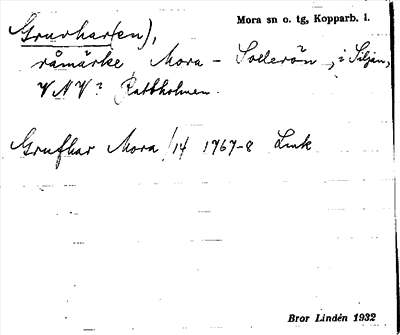 Gruvhar(en),
Mora sn o. tg, Kopparb. l.
råmärke Mora - Sollerön, i Siljan,
VNV? Rattholmen.
Grufhar Mora 1/14 1767-8 Link
Bror Lindén 1932